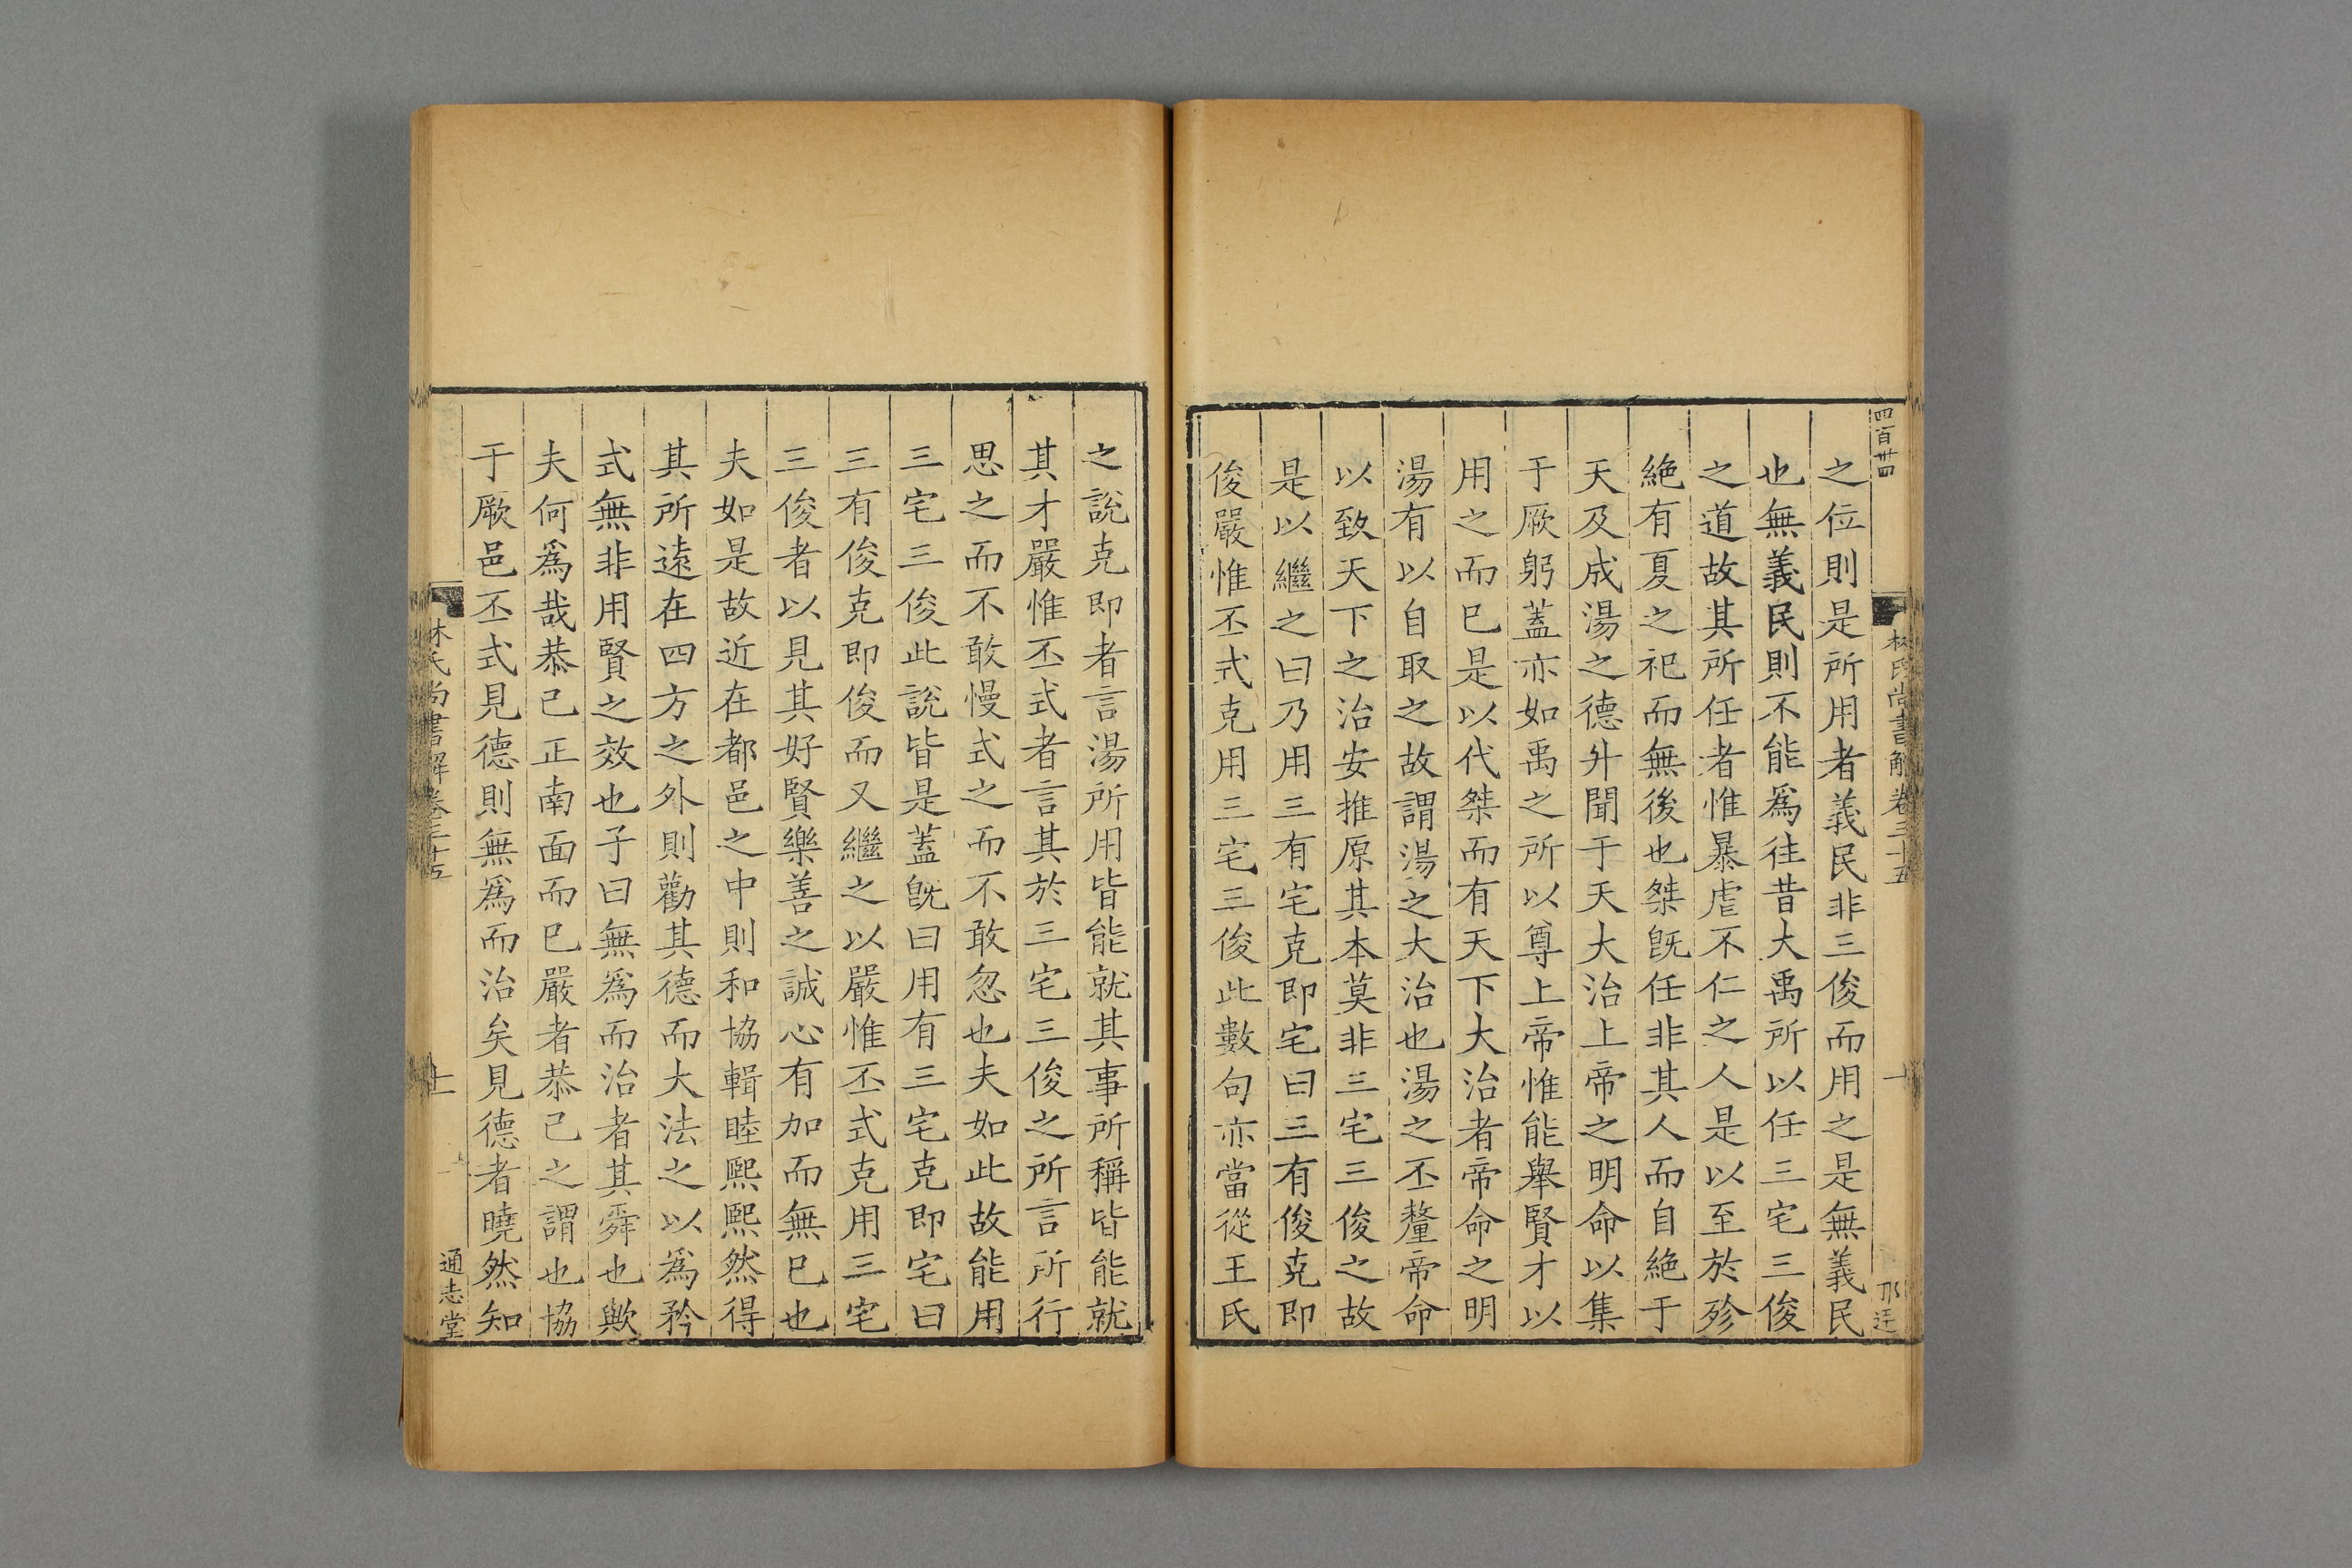 四百廿四
林氏尚書解卷三十五
之位則是所用者義民非三俊而用之是無義民
也無義民則不能爲往昔大禹所以任三宅三俊
之道故其所任者惟暴虐不仁之人是以至於殄
絶有夏之祀而無後也桀旣任非其人而自絶于
天及成湯之德升聞于天大治上帝之明命以集
于厥躬蓋亦如禹之所以尊上帝惟能舉賢才以
用之而已是以代桀而有天下大治者帝命之明
湯有以自取之故謂湯之大治也湯之丕釐帝命
以致天下之治安推原其本莫非三宅三俊之故
是以繼之曰乃用三有宅克即宅曰三有俊克即
俊嚴惟丕式克用三宅三俊此數句亦當從王氏
之說克即者言湯所用皆能就其事所稱皆能就
其才嚴惟丕式者言其於三宅三俊之所言所行
思之而不敢慢式之而不敢忽也夫如此故能用
三宅三俊此說皆是蓋旣曰用有三宅克即宅曰
三有俊克即俊而又繼之以嚴惟丕式克用三宅
三俊者以見其好賢樂善之誠心有加而無已也
夫如是故近在都邑之中則和協輯睦熙熙然得
其所遠在四方之外則勸其德而大法之以爲矜
式無非用賢之效也子曰無爲而治者其舜也歟
夫何爲哉恭己正南面而已嚴者恭己之謂也協
于厥邑丕式見德則無爲而治矣見德者曉然知
林氏尚書解卷三十五
十一
通志堂